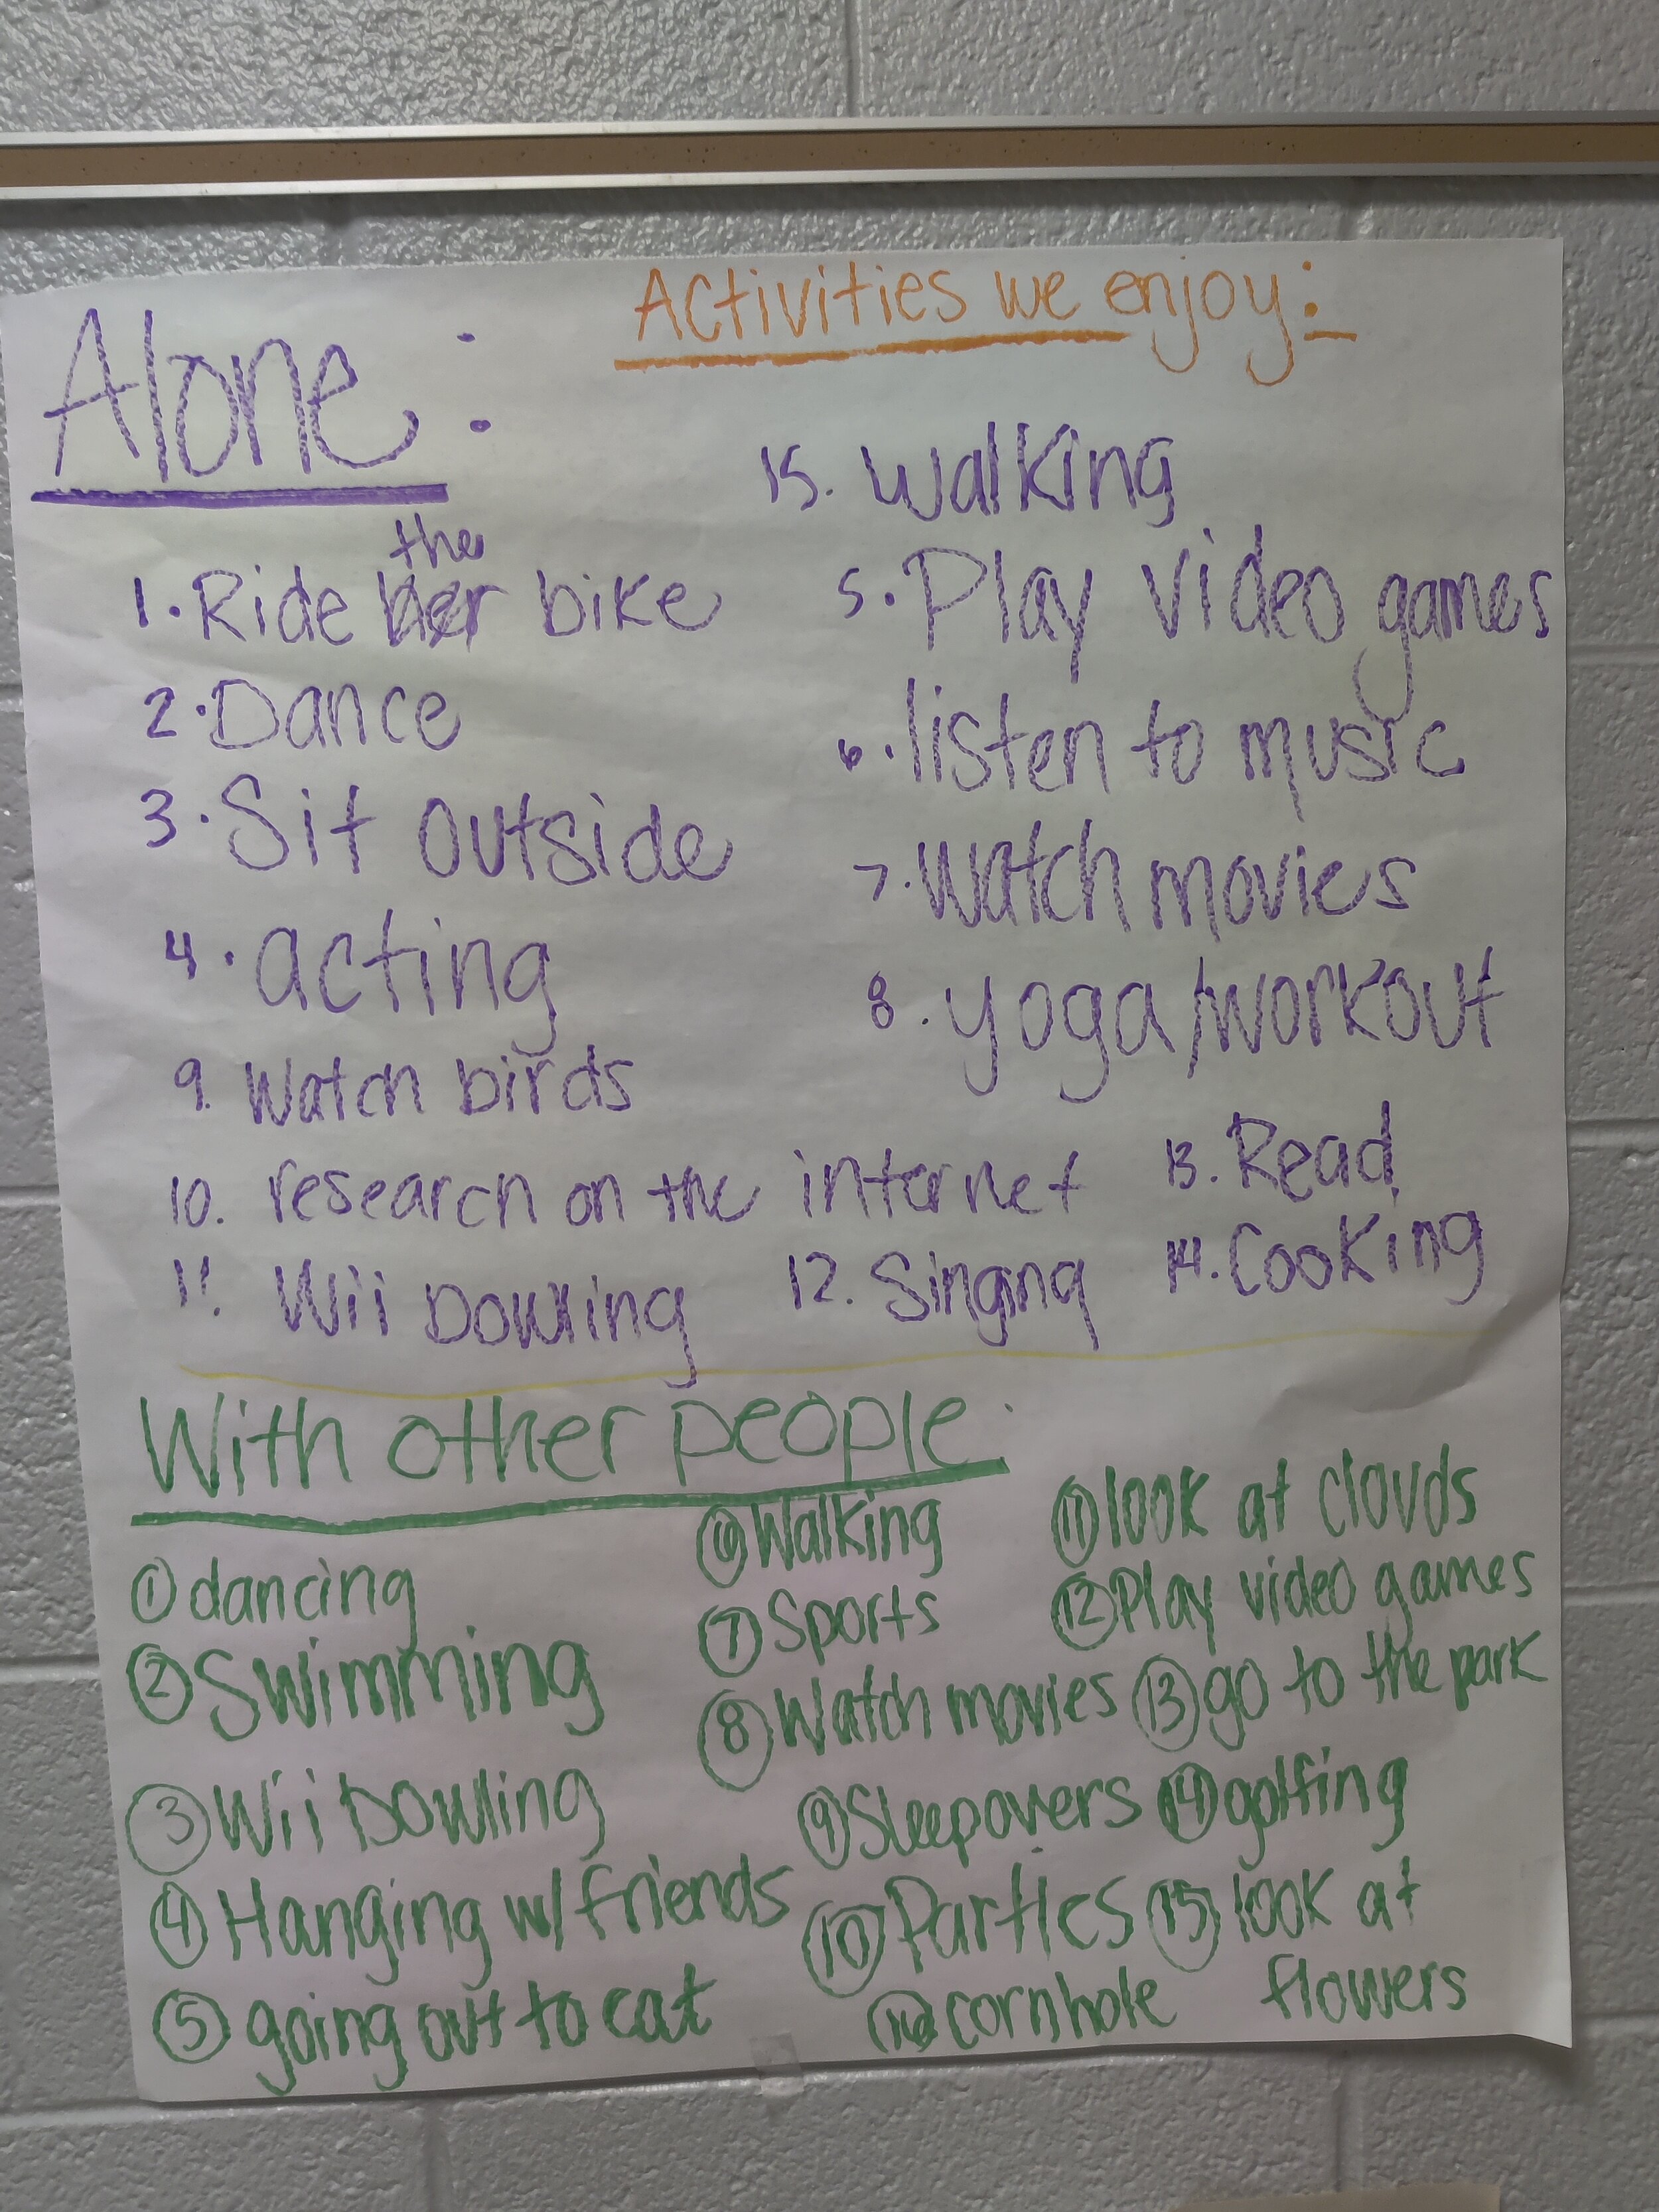 Activities we enjoy:
Alone:
1. Ride the bike
2. Dance
3. Sit outside
4. acting
15. Walking
5. Play video games
6. listen to music
7. Watch movies
8. yoga/workout
9. Watch birds
10. research on the internet
11. Wii bowling
12. Singing
13. Read
14. Cooking
With other people:
① dancing
② Swimming
③ Wii bowling
④ Hanging w/ friends
⑤ going out to eat
⑥ Walking
⑦ Sports
⑧ Watch movies
⑨ Sleepovers
⑩ Parties
⑪ look at clouds
⑫ Play video games
⑬ go to the park
⑭ golfing
⑮ look at
flowers
⑯ cornhole